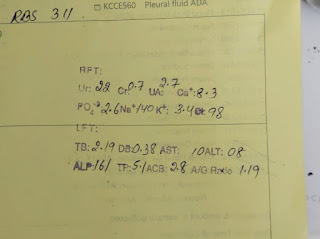 RBS 311
KCCE560 Pleural fluid ADA
RFT:
Ur: 22 Cr: 0.7 UA: 2.7 Ca⁺: 8.3
PO₄⁻³ 2.6 Na⁺ 140 K⁺: 3.4 Cl: 98
LFT:
TB: 2.19 DB: 0.38 AST: 10 ALT: 08
ALP: 161 TP: 5.1 ACB: 2.8 A/G Ratio 1.19